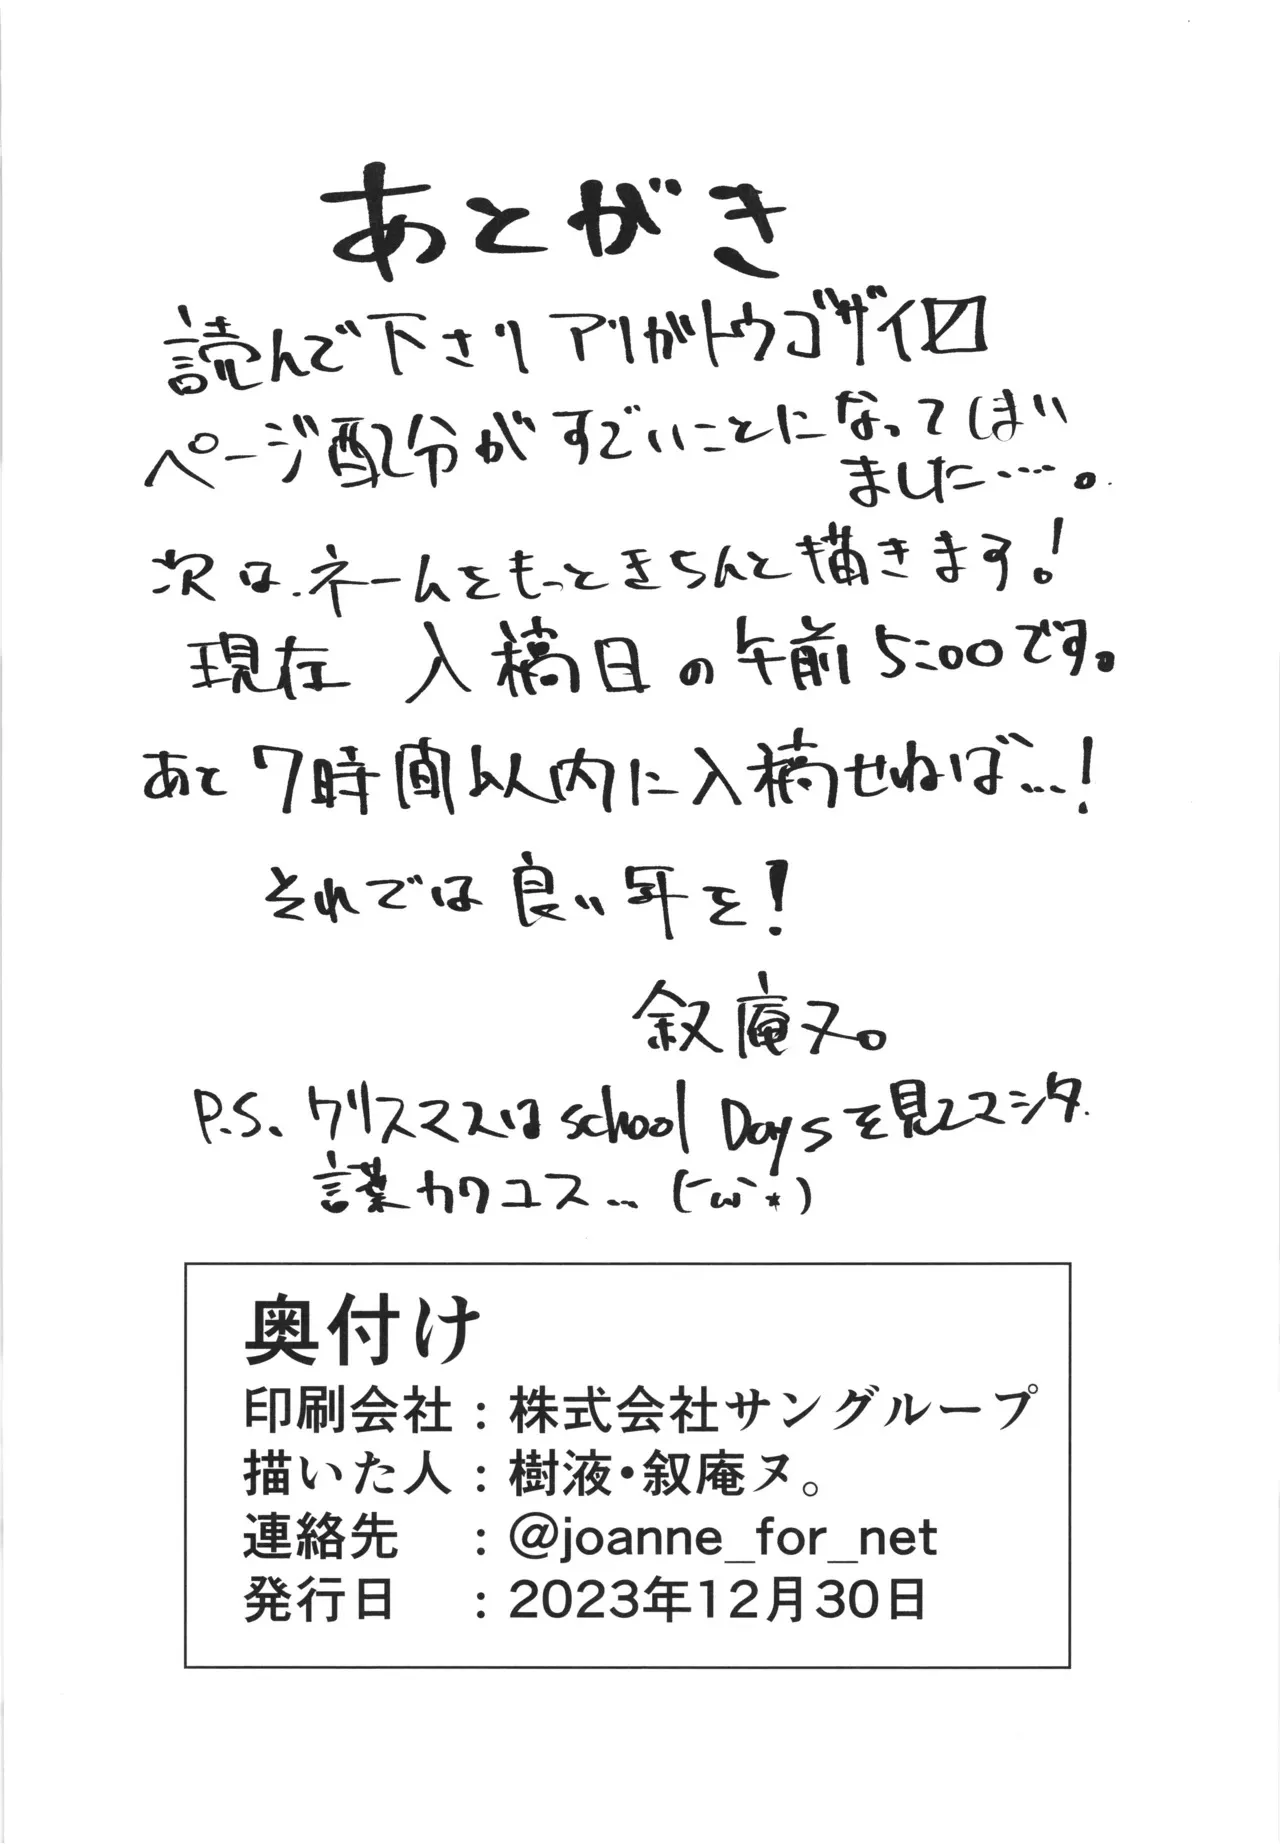 あとがき
読んで下さりアリガトウゴザイ〼
ページ配分がすごいことになってしまい
ました…。
次は、ネームをもっときちんと描きます!
現在 入稿日の午前5:00です。
あと7時間以内に入稿せねば…!
それでは良い年を!
叙庵ヌ。
P.S. クリスマスはschool Daysを見てマシタ.
言葉カワユス… (´ω`*)
奥付け
印刷会社:株式会社サングループ
描いた人:樹液・叙庵ヌ。
連絡先 :@joanne_for_net
発行日 :2023年12月30日